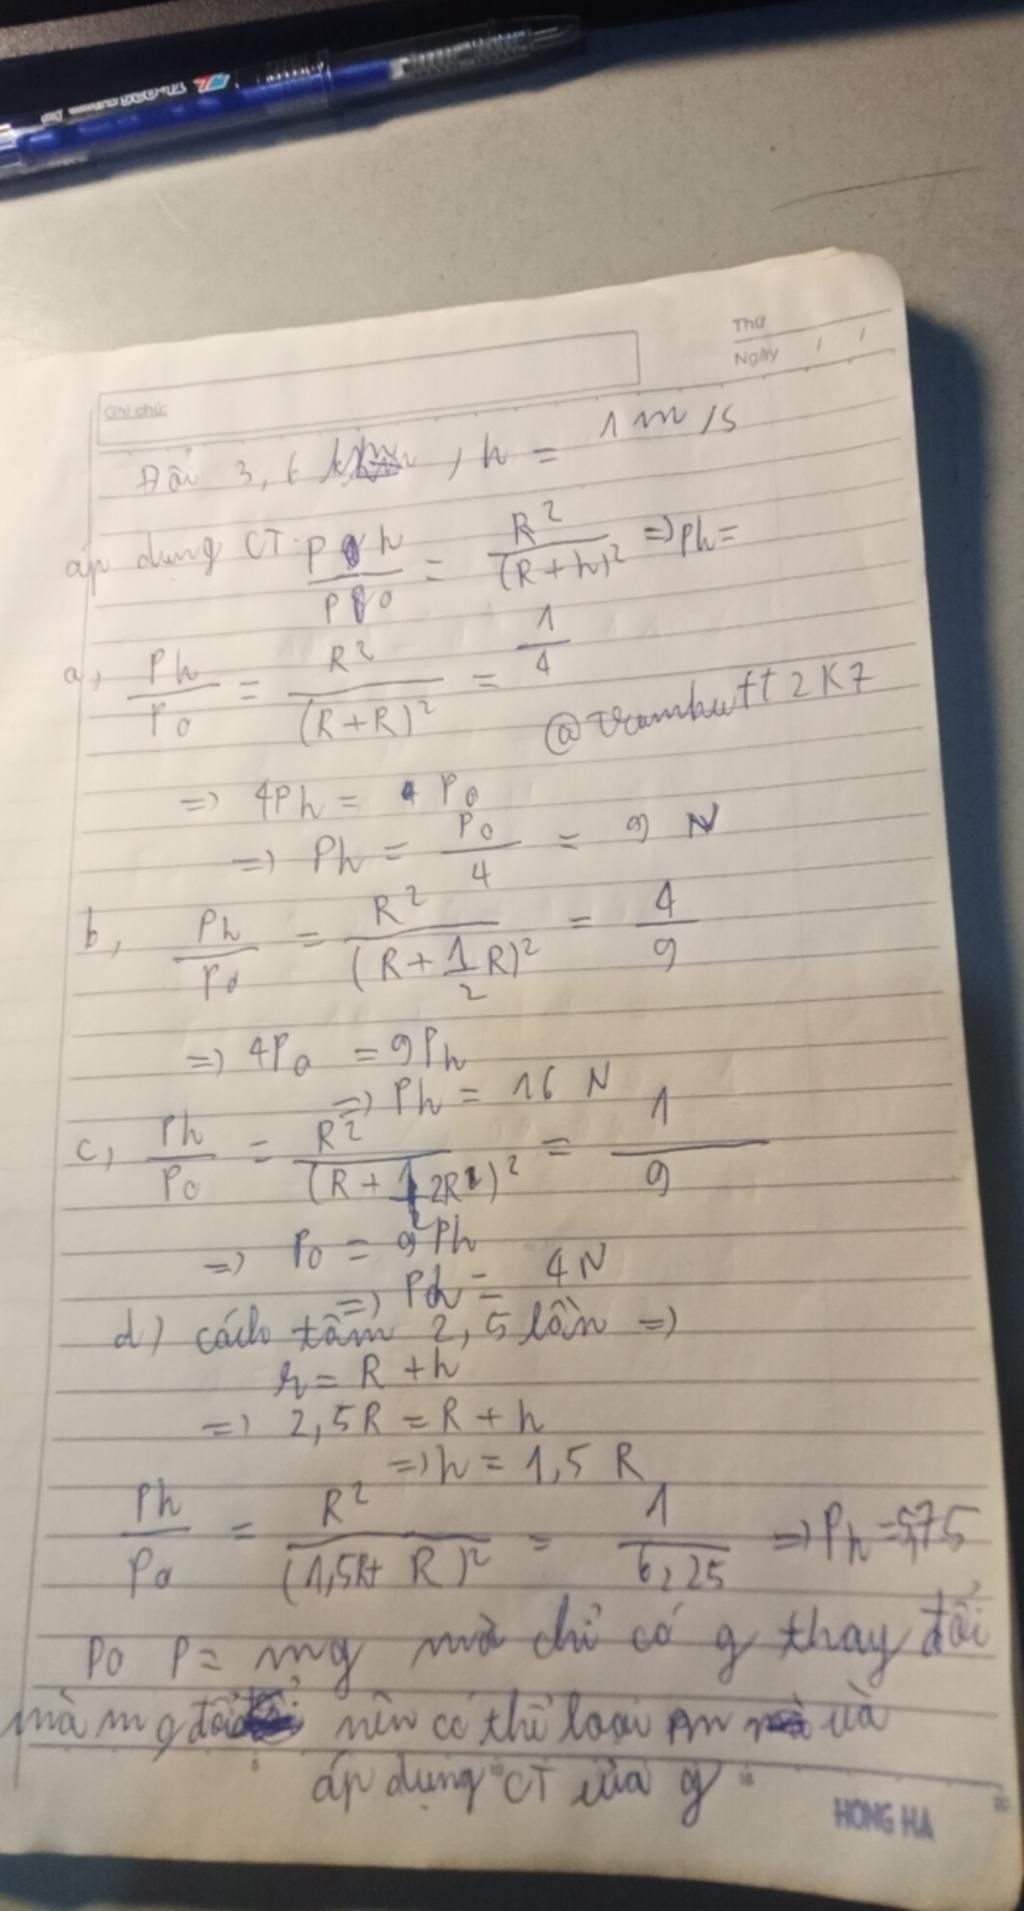 Thứ
Ngày / /
Ghi chú:
Đổi 3,6 , h = 1 m/s
áp dụng CT: Ph/P0 = R²/(R+h)² => Ph =
a, Ph/P0 = R²/(R+R)² = 1/4
@trambuftt2K7
=> 4Ph = P0
=> Ph = P0/4 = 9 N
b, Ph/P0 = R²/(R+1/2R)² = 4/9
=> 4P0 = 9Ph
=> Ph = 16 N
c, Ph/P0 = R²/(R+2R)² = 1/9
=> P0 = 9Ph
=> Ph = 4N
d) cách tâm 2,5 lần =>
r = R + h
=> 2,5R = R + h
=> h = 1,5 R
Ph/P0 = R²/(1,5R+ R)² = 1/6,25 => Ph = 5,75
P0 P = mg mà chỉ có g thay đổi
mà m g đổi nên có thể loại m và
áp dụng CT của g
HONG HA